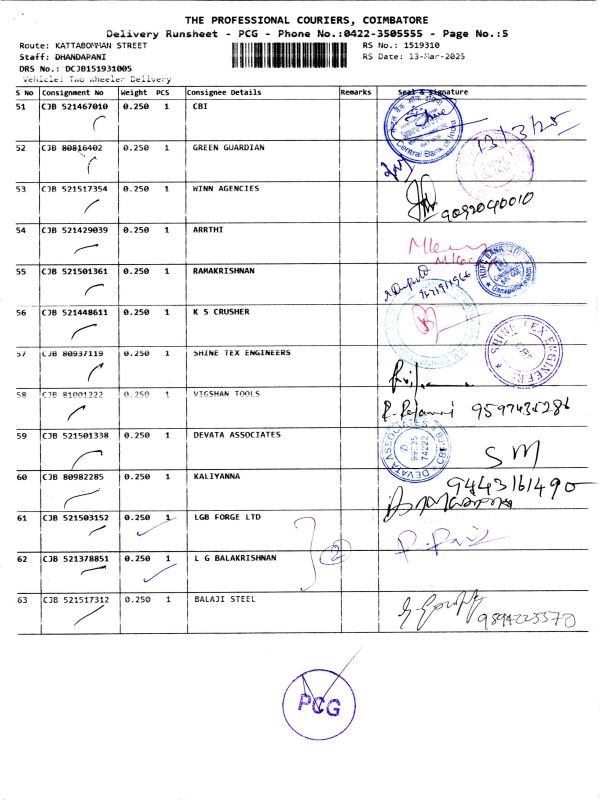 THE PROFESSIONAL COURIERS, COIMBATORE
Delivery Runsheet - PCG - Phone No.:0422-3505555 - Page No.:5
Route: KATTABOMMAN STREET RS No.: 1519310
Staff: DHANDAPANI RS Date: 13-Mar-2025
DRS No.: DCJB151931005
Vehicle: Two Wheeler Delivery
S No Consignment No Weight PCS Consignee Details Remarks Seal & Signature
51 CJB 521467010 0.250 1 CBI
Central Bank of India
13/3/25
52 CJB 80816402 0.250 1 GREEN GUARDIAN
53 CJB 521517354 0.250 1 WINN AGENCIES
9092040010
54 CJB 521429039 0.250 1 ARRTHI
HDFC BANK
55 CJB 521501361 0.250 1 RAMAKRISHNAN
56 CJB 521448611 0.250 1 K S CRUSHER
SHINE TEX ENGINEERS
57 CJB 80937119 0.250 1 SHINE TEX ENGINEERS
58 CJB 81001222 0.250 1 VIGSHAN TOOLS
9597435286
59 CJB 521501338 0.250 1 DEVATA ASSOCIATES
DEVATA ASSOCIATES
SM
60 CJB 80982285 0.250 1 KALIYANNA
9443161490
61 CJB 521503152 0.250 1 LGB FORGE LTD
2
62 CJB 521378851 0.250 1 L G BALAKRISHNAN
63 CJB 521517312 0.250 1 BALAJI STEEL
9894223570
PCG